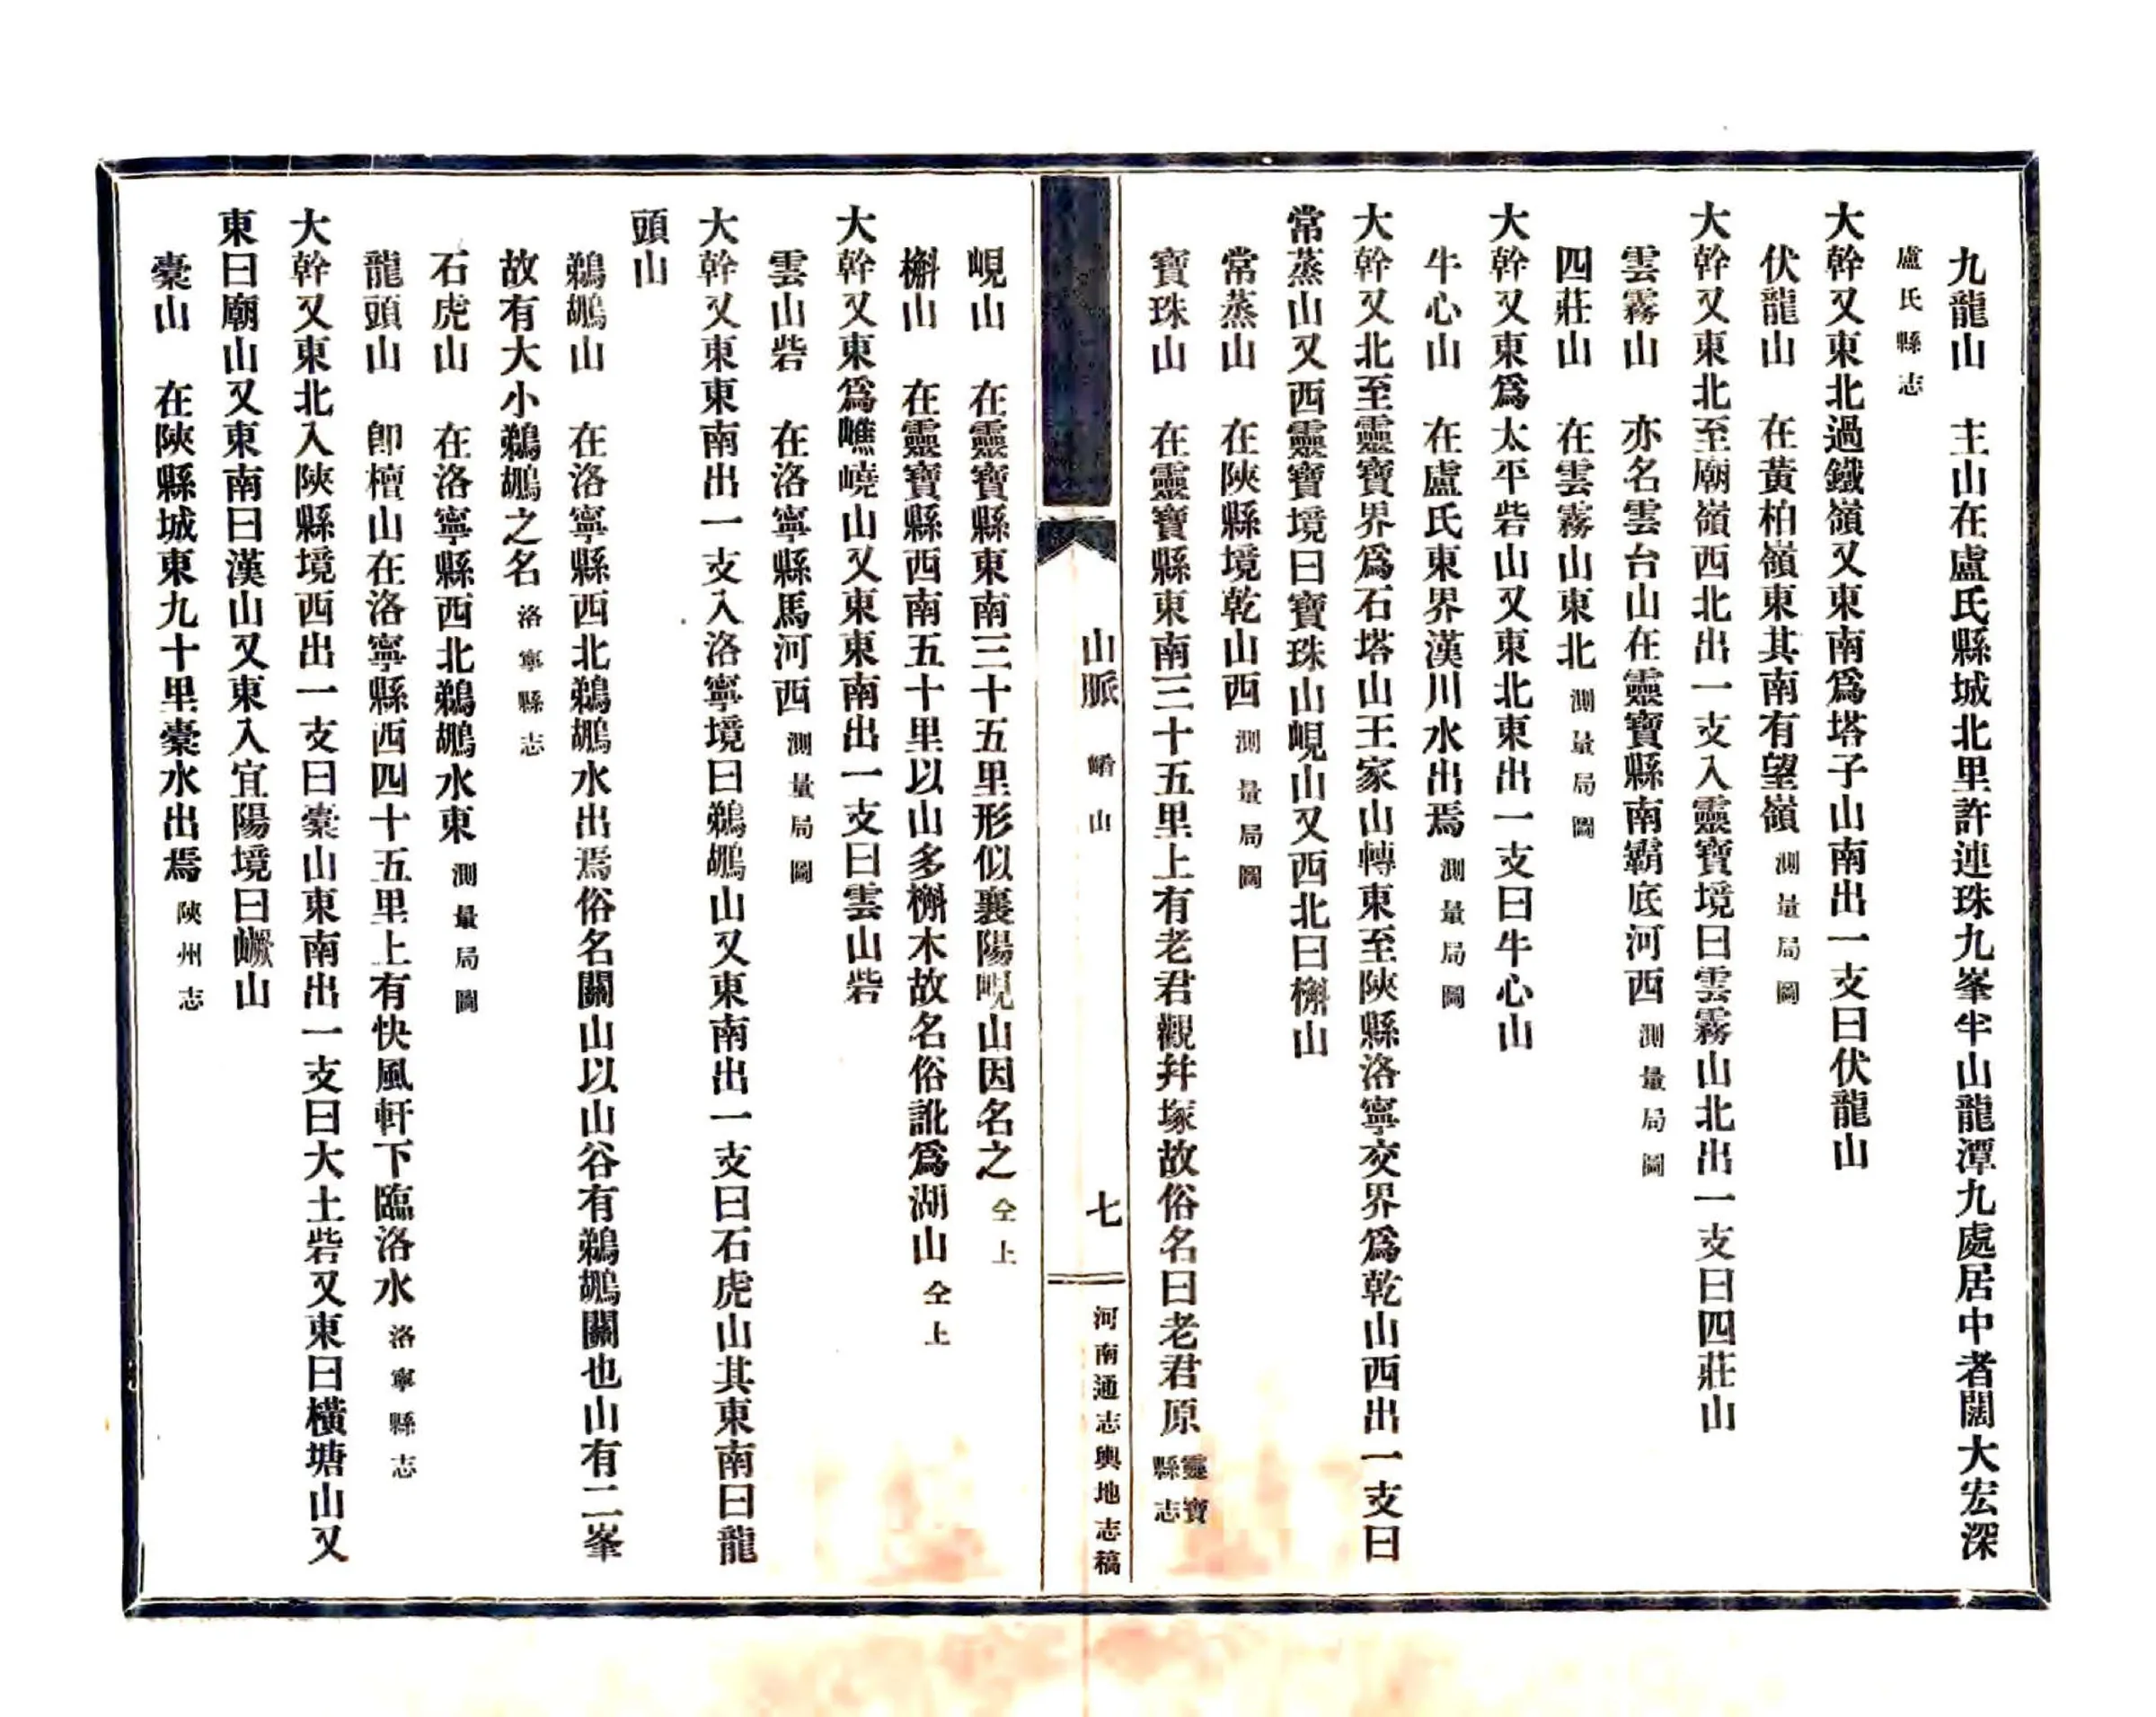 九龍山　主山在盧氏縣城北里許連珠九峯半山龍潭九處居中者闊大宏深
盧氏縣志
大幹又東北過鐵嶺又東南爲塔子山南出一支曰伏龍山
伏龍山　在黃柏嶺東其南有望嶺測量局圖
大幹又東北至廟嶺西北出一支入靈寶境曰雲霧山北出一支曰四莊山
雲霧山　亦名雲台山在靈寶縣南霸底河西測量局圖
四莊山　在雲霧山東北測量局圖
大幹又東爲太平砦山又東北東出一支曰牛心山
牛心山　在盧氏東界漢川水出焉測量局圖
大幹又北至靈寶界爲石塔山王家山轉東至陝縣洛寧交界爲乾山西出一支曰
常蒸山又西靈寶境曰寶珠山峴山又西北曰槲山
常蒸山　在陝縣境乾山西測量局圖
寶珠山　在靈寶縣東南三十五里上有老君觀幷塚故俗名曰老君原靈寶縣志
山脈　崤山　七　河南通志輿地志稿
峴山　在靈寶縣東南三十五里形似襄陽峴山因名之仝上
槲山　在靈寶縣西南五十里以山多槲木故名俗訛爲湖山仝上
大幹又東爲嶕嶢山又東東南出一支曰雲山砦
雲山砦　在洛寧縣馬河西測量局圖
大幹又東東南出一支入洛寧境曰鵜鶘山又東南出一支曰石虎山其東南曰龍
頭山
鵜鶘山　在洛寧縣西北鵜鶘水出焉俗名關山以山谷有鵜鶘關也山有二峯
故有大小鵜鶘之名洛寧縣志
石虎山　在洛寧縣西北鵜鶘水東測量局圖
龍頭山　卽檀山在洛寧縣西四十五里上有快風軒下臨洛水洛寧縣志
大幹又東北入陝縣境西出一支曰橐山東南出一支曰大土砦又東曰橫塘山又
東曰廟山又東南曰漢山又東入宜陽境曰嶥山
橐山　在陝縣城東九十里橐水出焉陝州志